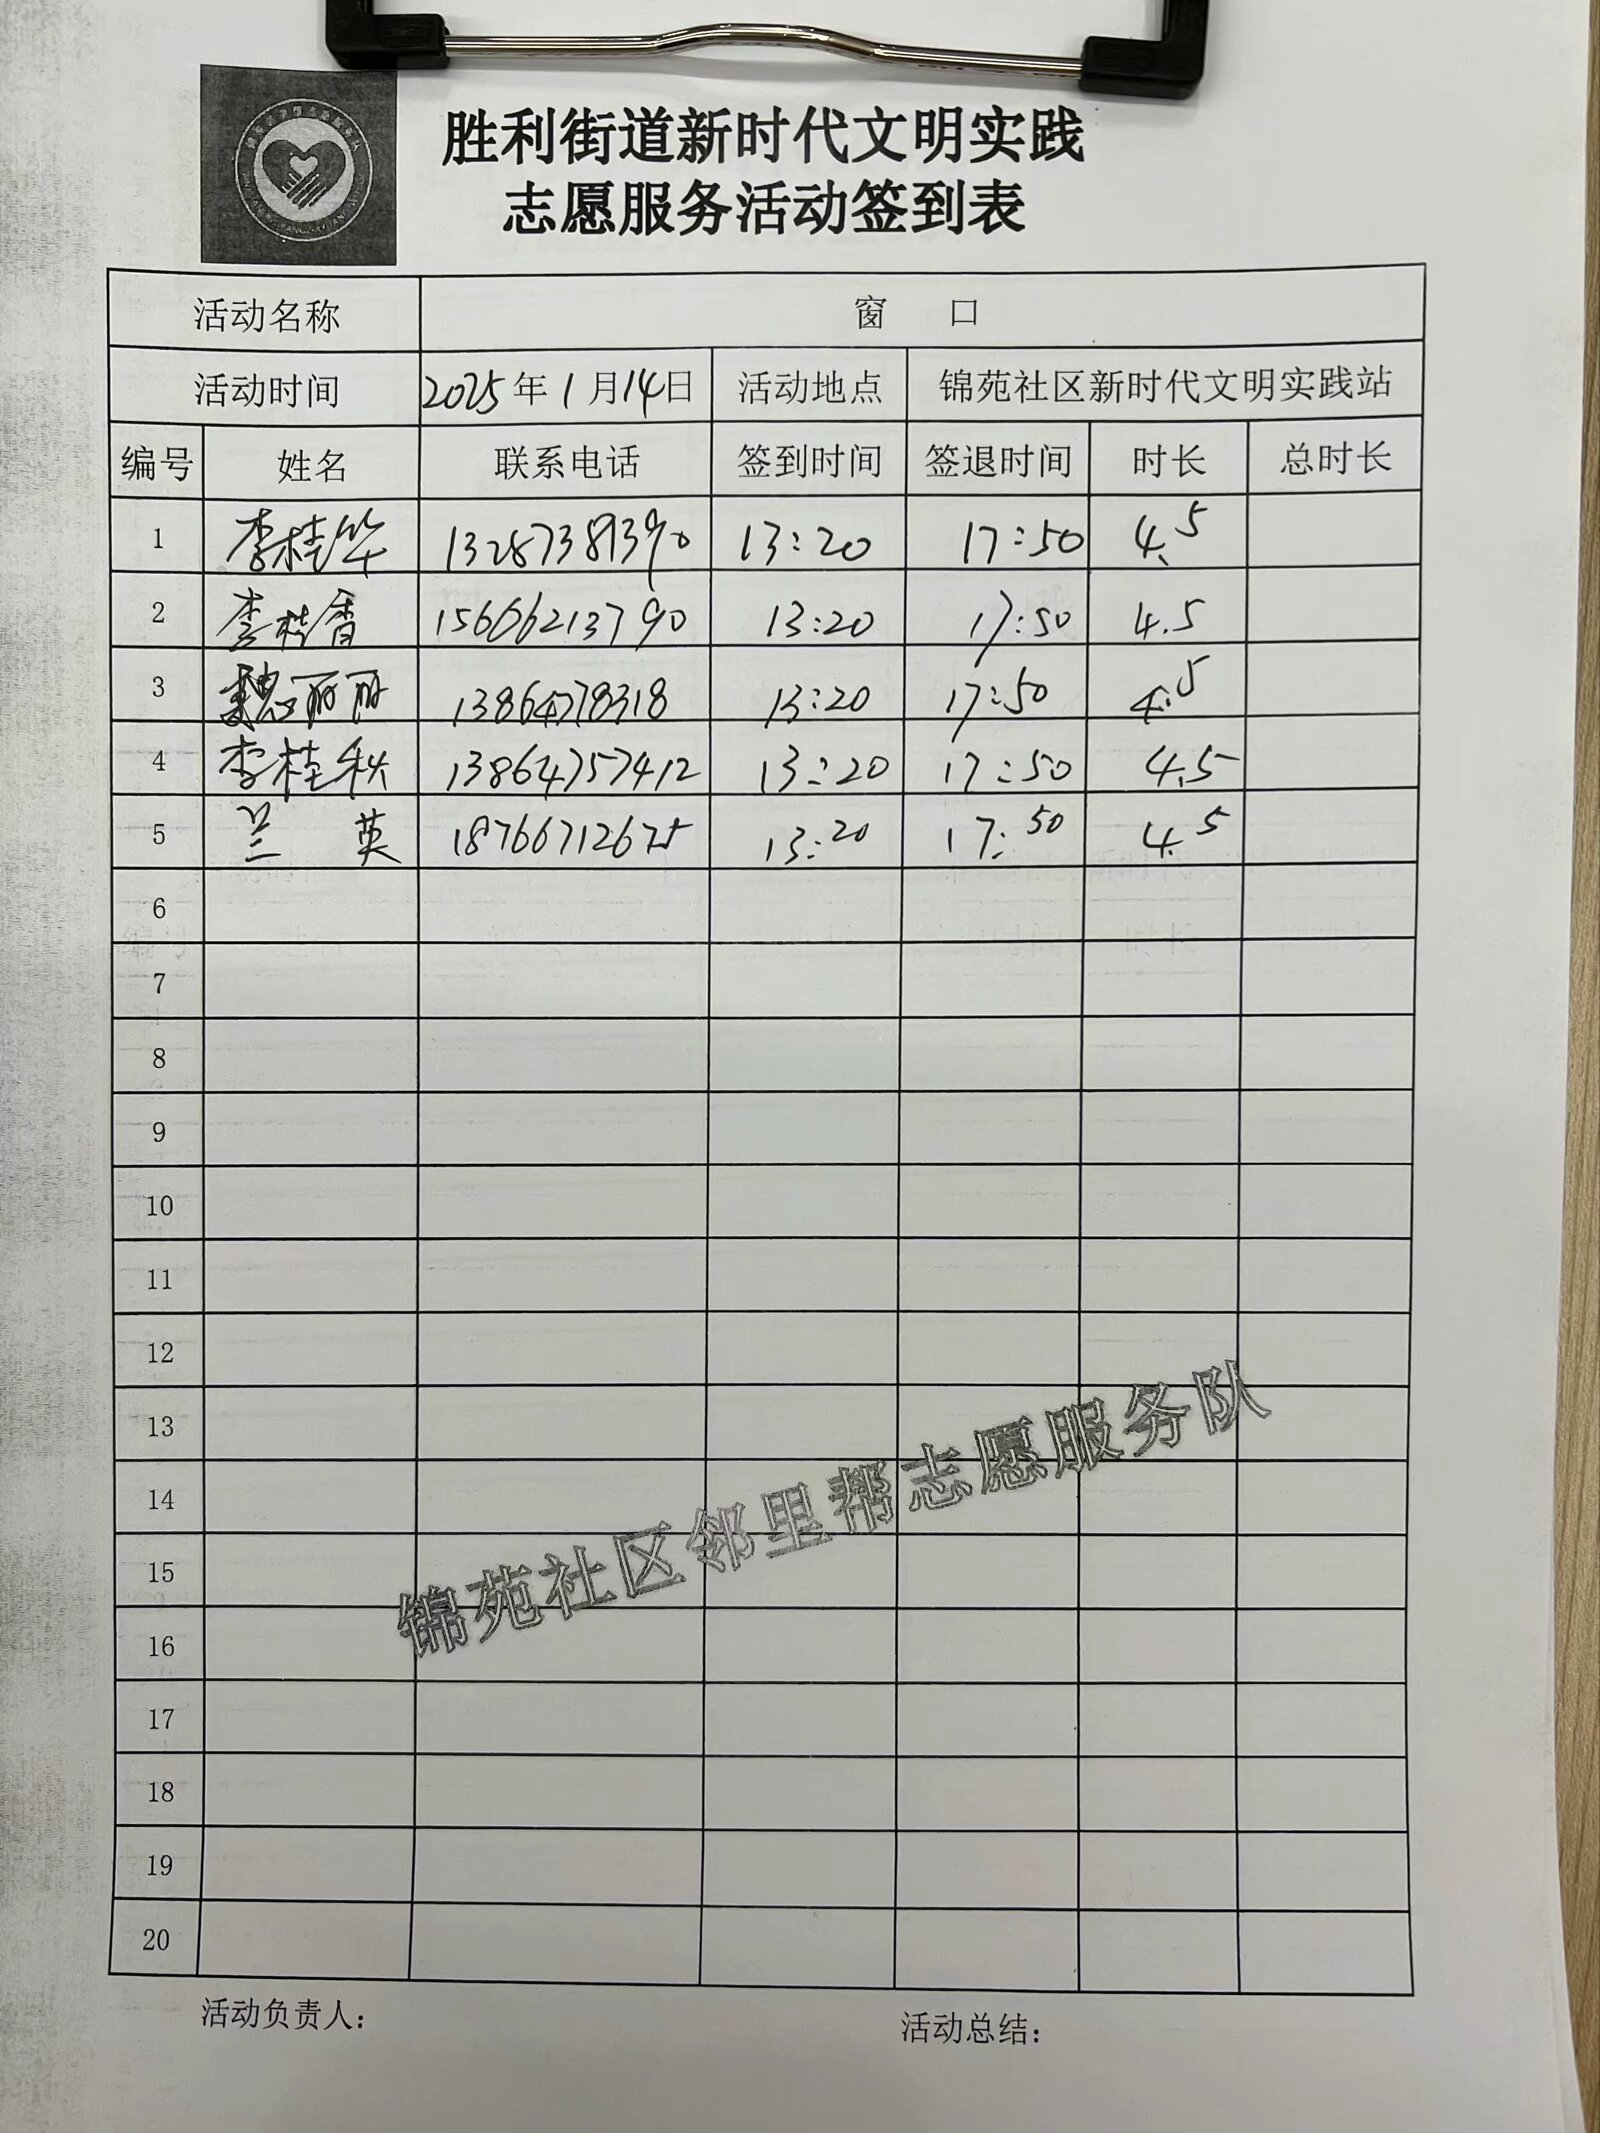 胜利街道新时代文明实践
志愿服务活动签到表
活动名称 窗 口
活动时间 2025年1月14日 活动地点 锦苑社区新时代文明实践站
编号 姓名 联系电话 签到时间 签退时间 时长 总时长
1 李桂华 13287389390 13:20 17:50 4.5
2 李桂香 15666213790 13:20 17:50 4.5
3 魏丽丽 13864778318 13:20 17:50 4.5
4 李桂秋 13864757412 13:20 17:50 4.5
5 兰 英 13:20 17:50 4.5
6
7
8
9
10
11
12
13
14
15
16
17
18
19
20
锦苑社区邻里帮志愿服务队
活动负责人: 活动总结: